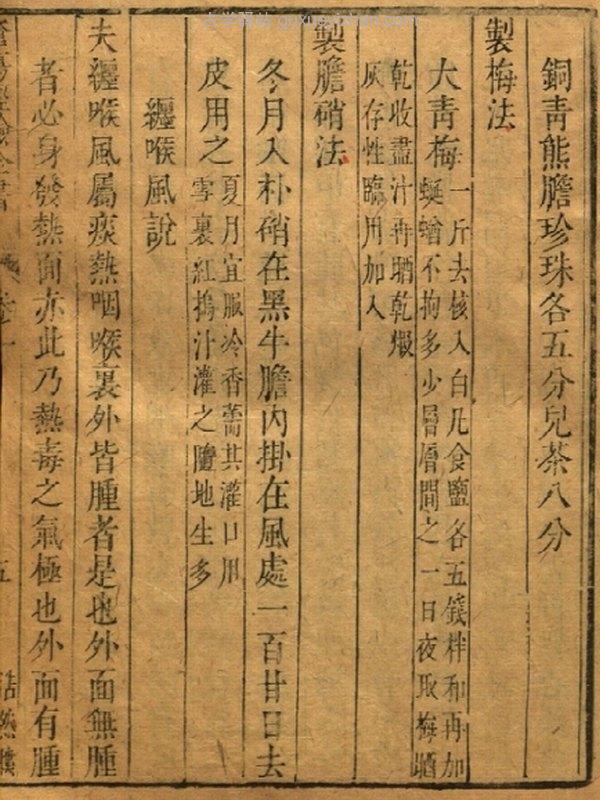 銅青熊膽珍珠各五分兒茶八分
製梅法
大青梅一斤去核入白凡食鹽各五錢拌和再加
蜒蝤不拘多少層層間之一日夜取梅晒
乾收盡汁再晒乾煅
灰存性臨用加入
製膽硝法
冬月入朴硝在黑牛膽內掛在風處一百廿日去
皮用之夏月宜服冷香薷其灌口用
雪裏紅搗汁灌之隨地生多
纒喉風說
夫纒喉風屬痰熱咽喉裏外皆腫者是也外面無腫
者必身發熱面亦此乃熱毒之氣極也外面有腫
五
浩然樓